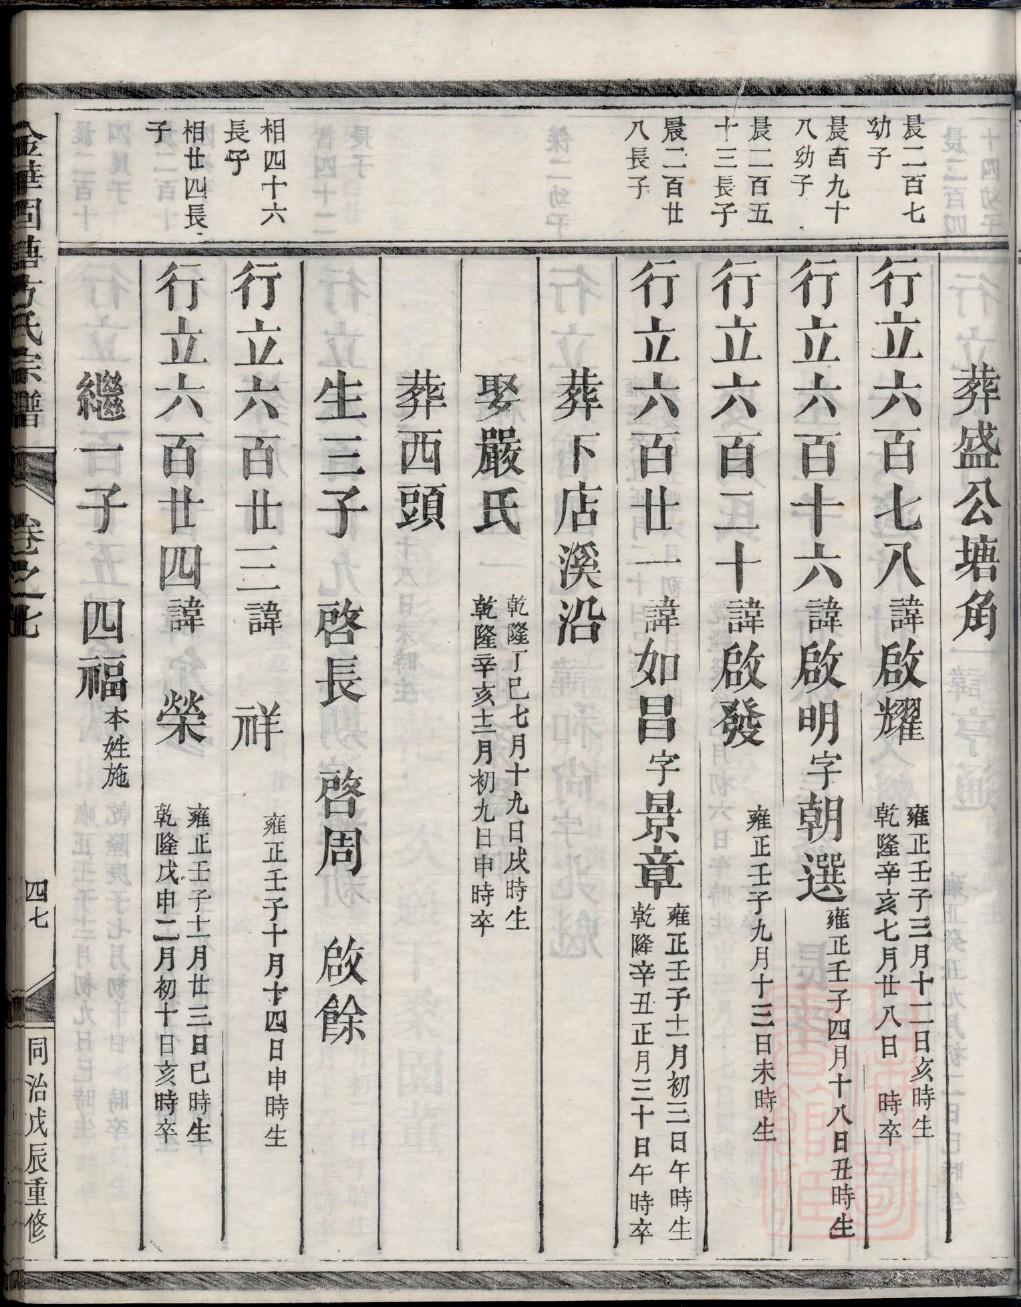 葬盛公塘角
晨二百七
幼子
行立六百七八諱啟耀
雍正壬子三月十二日亥時生
乾隆辛亥七月廿八日 時卒
晨百九十
八幼子
行立六百十六諱啟明字朝選
雍正壬子四月十八日丑時生
晨二百五
十三長子
行立六百二十諱啟發
雍正壬子九月十三日未時生
晨二百廿
八長子
行立六百廿一諱如昌字景章
雍正壬子十一月初三日午時生
乾隆辛丑正月三十日午時卒
葬下店溪沿
娶嚴氏
乾隆丁巳七月十九日戌時生
乾隆辛亥十二月初九日申時卒
葬西頭
生三子 啓長 啓周 啟餘
相四十六
長子
行立六百廿三諱 祥
雍正壬子十月十四日申時生
相廿四長
子
行立六百廿四諱 榮
雍正壬子十月廿三日巳時生
乾隆戊申二月初十日亥時卒
繼一子 四福本姓施
金華固塘方氏宗譜
卷之七
四七
同治戊辰重修